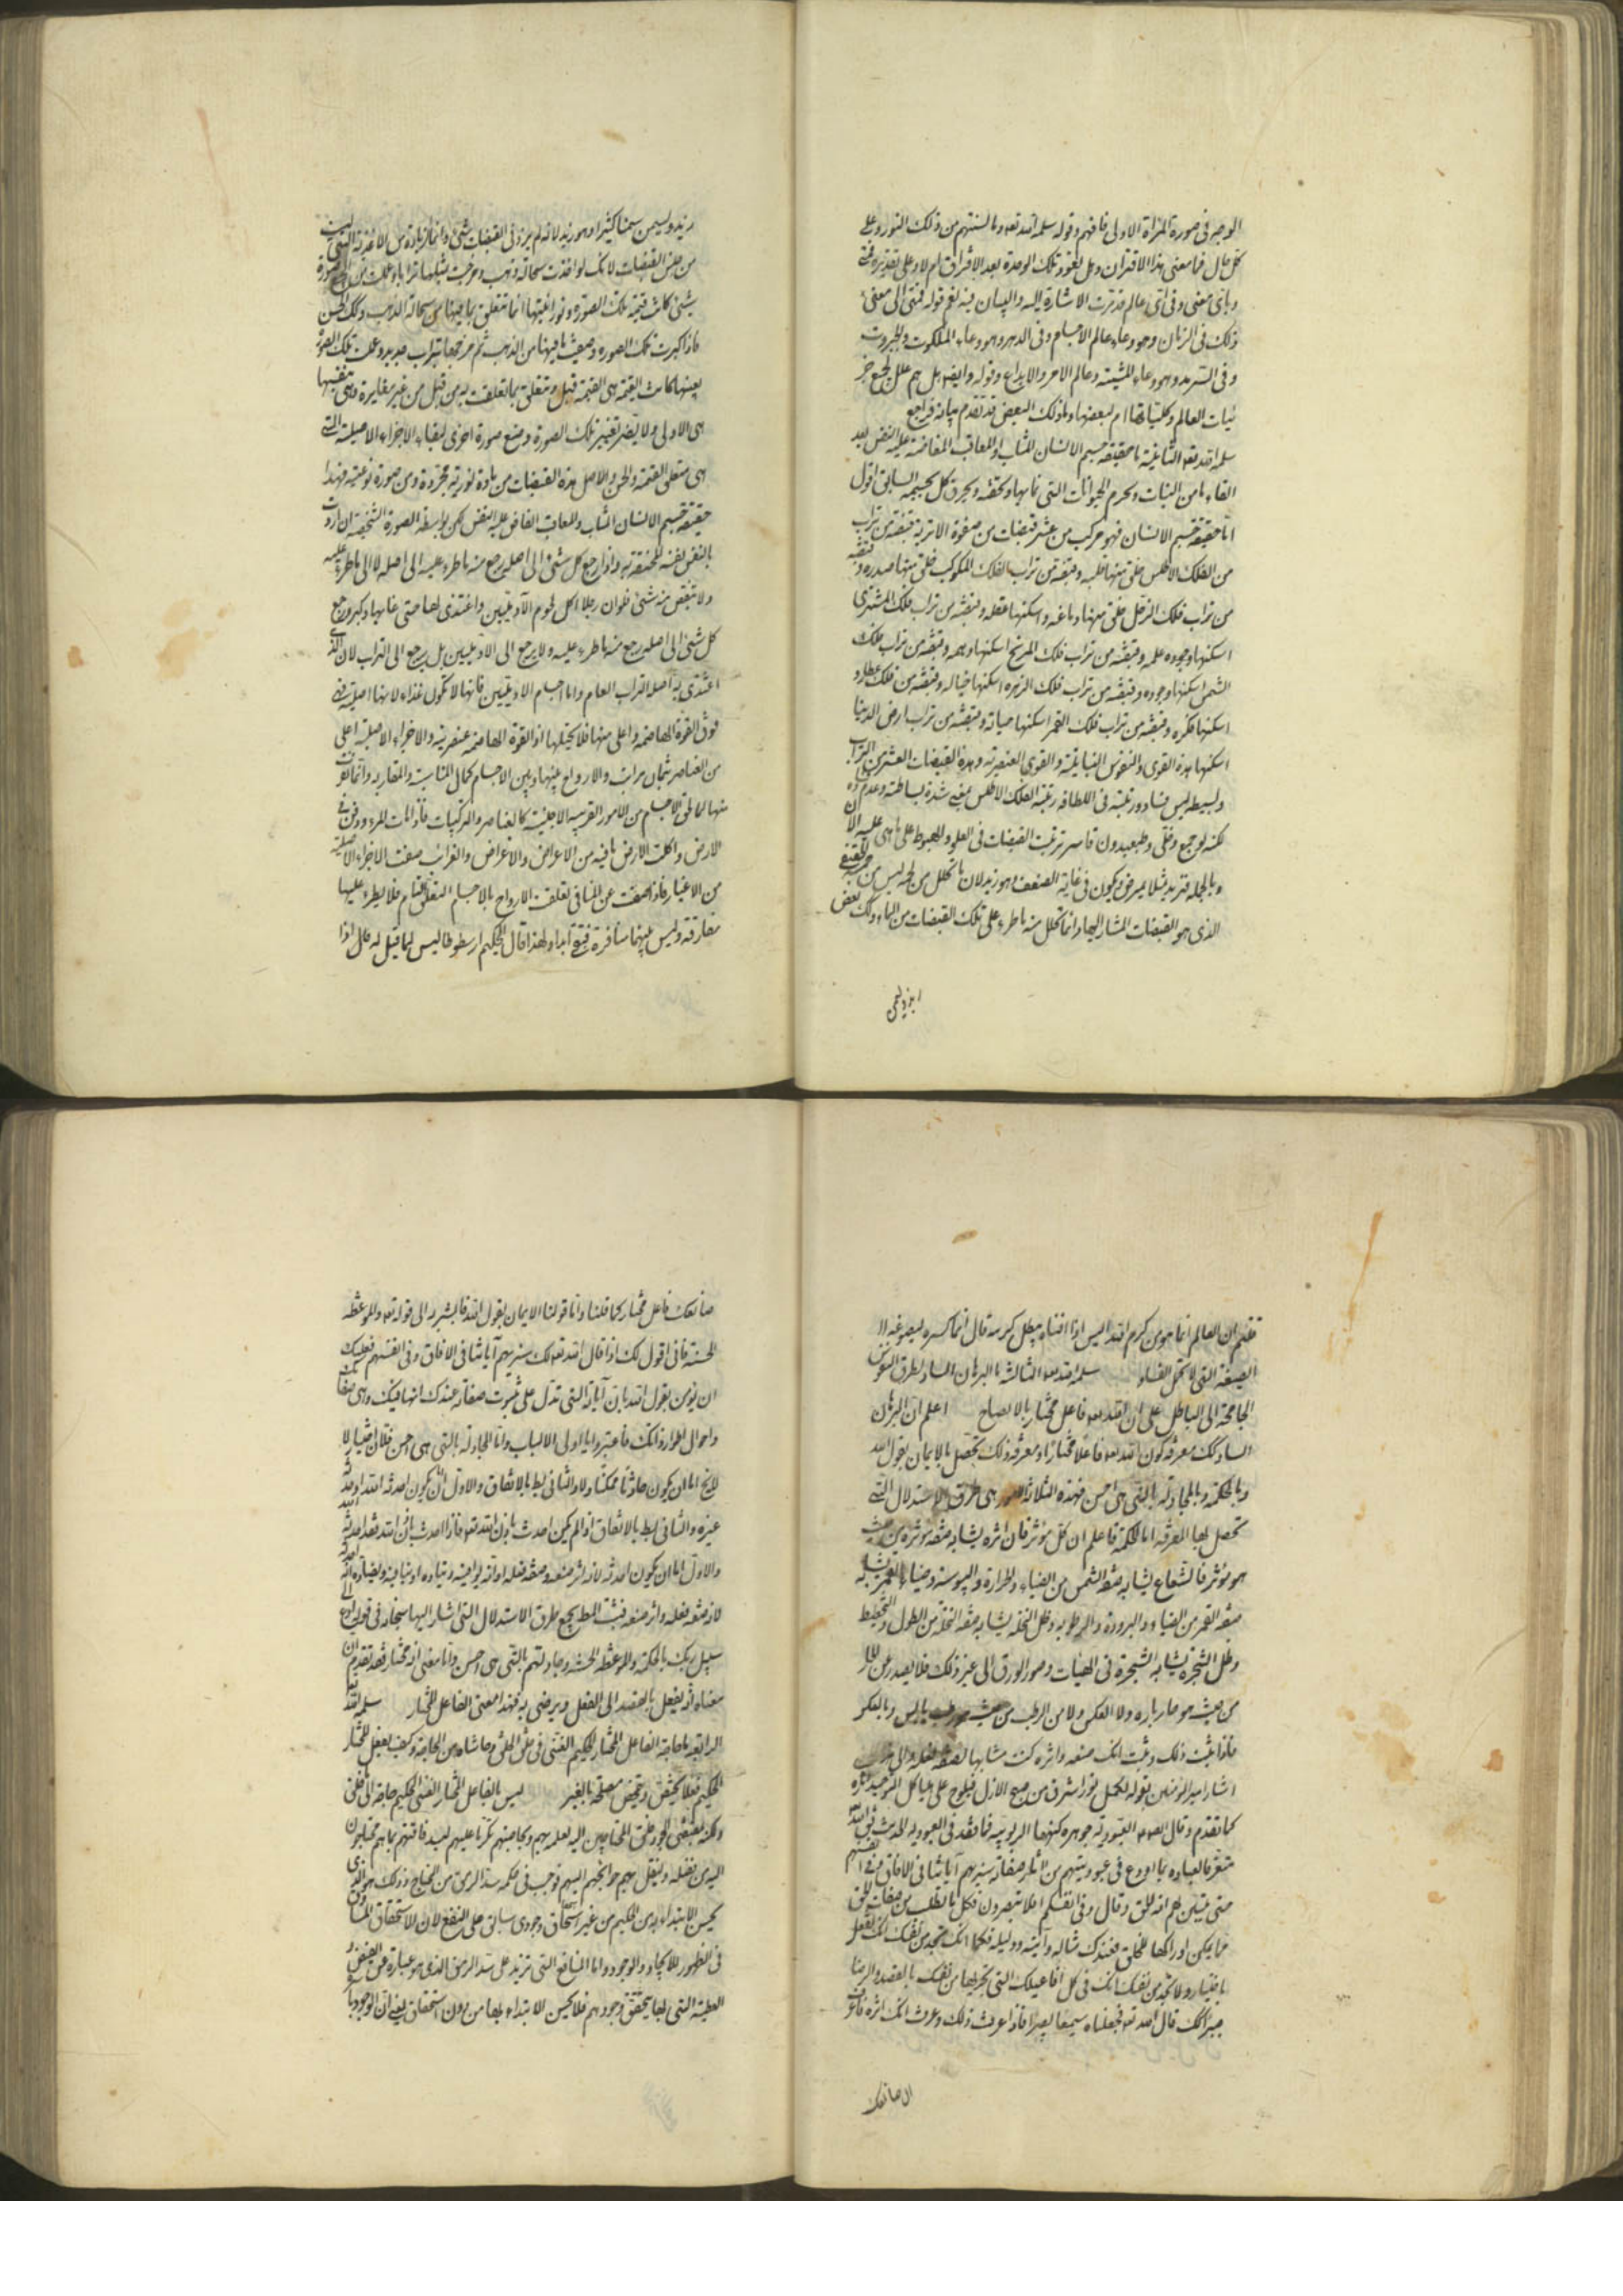 الوجه فى صورة المرآة الاولى فافهم وقوله سلمه الله تعه وما نسبتهم من ذلك النور وعلى
كل حال فما معنى هذا الاقتران وهل تعود تلك الوحدة بعد الافتراق ام لا وعلى تقديره فمتى
وباى معنى وفى اى عالم قد مرت الاشارة اليه والبيان فيه نعم قوله فمتى الى معنى
ذلك فى الزمان وهو وعاء عالم الاجسام وفى الدهر وهو وعاء الملكوت والجبروت
وفى السرمد وهو وعاء المشيئة وعالم الامر والابداع وقوله وايضا هل هم علل لجميع جز
ئيات العالم وكلياتها ام لبعضها وما ذلك البعض قد تقدم بيانه فراجع
سلمه الله تعه الثانية ما حقيقة جسم الانسان المثاب او المعاقب المفاضة عليه النفس بعد
القاء ما من النبات ولحوم الحيوانات التى نما بها وتحققه ويحرق كل بجسمه السابق اقول
اما حقيقة جسم الانسان فهو مركب من عشر قبضات من صفوة الاتربة قبضة من تراب
من الفلك الاطلس خلق منها قلبه وقبضة من تراب الفلك المكوكب خلق منها صدره وقبضة
من تراب فلك الزحل خلق منها دماغه واسكنها عقله وقبضة من تراب فلك المشترى
اسكنها وجوده علمه وقبضة من تراب فلك المريخ اسكنها وهمه وقبضة من تراب فلك
الشمس اسكنها وجوده وقبضة من تراب فلك الزهره اسكنها خياله وقبضة من فلك عطارد
اسكنها فكره وقبضة من تراب فلك القمر اسكنها حياته وقبضة من تراب ارض الدنيا
اسكنها هذه القوى والنفوس النباتية والقوى العنصرية وهذه القبضات العشر من التراب
ولبسيطه ليس فساد ورتبته فى اللطافة رتبة الفلك الاطلس بمعنى شدة بساطته وعدم
لكنه لو جمع وخلى وطبعه بدون قاسر ترتبت القبضات فى العلو والهبوط على ما هى عليه الان
وبالجملة فزيد مثلا يمرض ويكون فى غاية الضعف وهو زيد لان ما تحلل من لحمه ليس من
الذى هو القبضات المشار اليها وانما تحلل منه ما طرء على تلك القبضات من الماء
زيد ويسمن سمنا كثيرا وهو زيد لانه لم يزد فى القبضات شئ وانما زيادة من الاغذية التى ليست
من جنس القبضات لانك لو اخذت سحالة ذهب ومزجت بمثلها ترابا وعملت من الجميع صورة
شئ كانت قيمة تلك الصورة ونورانيتها انما تتعلق بما فيها من سحالة الذهب وتلك الحسن
فاذا كسرت تلك الصورة وصفيت ما فيها من الذهب ثم مزجها بتراب جديد وعملت تلك الصورة
بعينها كانت القيمة هى القيمة قبل وتتعلق بما تعلقت به من قبل من غير مغايرة وهى بنفسها
هى الاولى ولا يضر تغيير تلك الصورة وصنع صورة اخرى لبقاء الاجزاء الاصيلة التى
هى متعلق القيمة والحسن والاصل هذه القبضات من مادة نورية مجردة ومن صورة نوعية فهذا
حقيقة جسم الانسان المثاب والمعاقب الفائض عليه النفس لكن بواسطة الصورة الشخصية ان اردت
بالنفس نفسه المختصة به واذا رجع كل شئ الى اصله رجع منه ما طرء عليه الى اصله لا الى ما طرء عليه
ولا ينقص منه شئ فلو ان رجلا اكل لحوم الآدميين واغتذى بها حتى نما بها وكبر ورجع
كل شئ الى اصله رجع منه ما طرء عليه ولا يرجع الى الآدميين بل يرجع الى التراب لان الذى
اغتذى به اصله التراب العام واما اجسام الآدميين فانها لا تكون غذاء لانها اصلية فهى
فوق القوة الهاضمة واعلى منها فلا تحيلها اذ القوة الهاضمة عنصرية والاجزاء الاصلية اعلى
من العناصر بثمان مراتب والارواح بينها وبين الاجسام كمال المناسبة والمقاربة وانما تفرق
منها لما لحق الاجسام من الامور الغريبة الاجنبية كالعناصر والتركيبات فاذا مات المرء ودفن فى
الارض واكلت الارض ما فيه من الاعراض والاغراض والغرائب صفت الاجزاء الاصلية
من الاغيار فاذا صفت عن المنافى تعلقت الارواح بالاجسام التعلق التام فلا يطرء عليها
مفارقة وليس بينهما منافرة فتقع ابدا ولهذا قال الحكيم ارسطو طاليس لما قيل له هل اذا
تقدم ان العالم انما هو من كرم الله اليس اذا افناه يبطل كرمه قال انما كسره ليصوغه
الصيغة التى لا تحتمل الفساد سلمه الله تعه الثالثة ما البرهان الساد لطرق النفوس
الجامحة الى الباطل على ان الله تعه فاعل مختار بالايضاح اعلم ان البرهان
الساد لك معرفة كون الله تعه فاعلا مختارا ومعرفة ذلك تحصل بالايمان بقول الله
وبالحكمة وبالمجادلة بالتى هى احسن فهذه الثلاثة الامور هى طرق الاستدلال التى
تحصل بها المعرفة اما الحكمة فاعلم ان كل مؤثر فان اثره يشابه صفة مؤثره من حيث
هو مؤثر فالشعاع يشابه صفة الشمس من الضياء والحرارة واليبوسة وضياء القمر يشابه
صفة القمر من الضياء والبرودة والرطوبة وظل النخلة يشابه صفة النخلة من الطول والتخطيط
وظل الشجرة يشابه الشجرة فى الهيئات وصور الورق الى غير ذلك فلا يصدر عن الحار
من حيث هو حار بارد ولا العكس ولا من الرطب من حيث هو رطب يابس وبالعكس
فاذا ثبت ذلك وثبت انك صنعه واثره كنت مشابها لصفة فعله والى
اشار امير المؤمنين بقوله لكميل نور اشرق من صبح الازل فيلوح على هياكل التوحيد اثاره
كما تقدم وقال الصادق العبودية جوهرة كنهها الربوبية فما فقد فى العبودية
متعرفا لعباده بما اودع فى عبوديتهم من اثار صفاته سنريهم آياتنا فى الافاق وفى انفسهم
حتى يتبين لهم انه الحق وقال وفى انفسكم افلا تبصرون فكل ما يطلب من صفات الحق
مما يمكن ادراكها للخلق فعندك مثاله وآيته ودليله فكما انك تجد من نفسك انك تفعل
باختيار ولا تجد من نفسك انك فى كل افاعيلك التى تجريها من نفسك بالقصد والرضا
جبر لك قال الله تعه فجعلناه سميعا بصيرا فاذا عرفت ذلك وعرفت انك اثره فاعرف
ان صانعك
صانعك فاعل مختار كما قلنا واما قولنا الايمان بقول الله تعه الى قوله تعه والموعظة
الحسنة فانى اقول لك اذا قال الله تعه لك سنريهم آياتنا فى الافاق وفى انفسهم فعليك
ان تؤمن بقول الله بان آياته التى تدل على ثبوت صفاته عندك انها فيك وهى صفاتك
واحوال اطوار ذاتك فاعتبروا يا اولى الالباب واما المجادلة بالتى هى احسن فلان اختيار لا
يخ اما ان يكون حادثا ممكنا ولا والثانى بط بالاتفاق والاول اما ان يكون احدثه الله او احدثه
غيره والثانى بط بالاتفاق اذ لم يكن احدث باذن الله تعه فاذا احدث باذن الله فقد احدثه الله
والاول اما ان يكون احدثه لانه اثر صنعه وصفة فعله او انه يوافيه ويتباده او ينافيه ويضاده
لانه صفة فعله واثر صنعه فثبت المط بجميع طرق الاستدلال التى اشار اليها سبحانه فى قوله ادع الى
سبيل ربك بالحكمة والموعظة الحسنة وجادلهم بالتى هى احسن واما معنى انه مختار فقد تقدم ان
معناه انه يفعل بالقصد الى الفعل ويرضى به فهذا معنى الفاعل المختار سلمه الله تعه
الرابعة ما حاجة الفاعل المختار الحكيم الغنى فى خلق الخلق وحاشاه من الحاجة وكيف يفعل المختار
الحكيم فعلا لمحض مصلحة بالغير ليس بالفاعل المختار الغنى الحكيم حاجة الى خلق
ولكنه بمقتضى الجود خلق المحتاجين اليه لعلمه بهم وبحاجتهم تكرما عليهم ليسد فاقتهم بما هم محتاجون
اليه من فضله ولينقل بهم حوائجهم اليهم فوجب فى حكمه سد الرمق من المحتاج وذلك هو الذى
يحسن الابتداء به من الحكيم من غير استحقاق وجودى سابق على النفع لان الاستحقاق
فى الظهور للايجاد والوجود واما المنافع التى تزيد على سد الرمق الذى هو عبارة عن الفيض
العطية التى بها يتحقق وجودهم فلا يحسن الابتداء بها من دون استحقاق يعنى ان الوجود